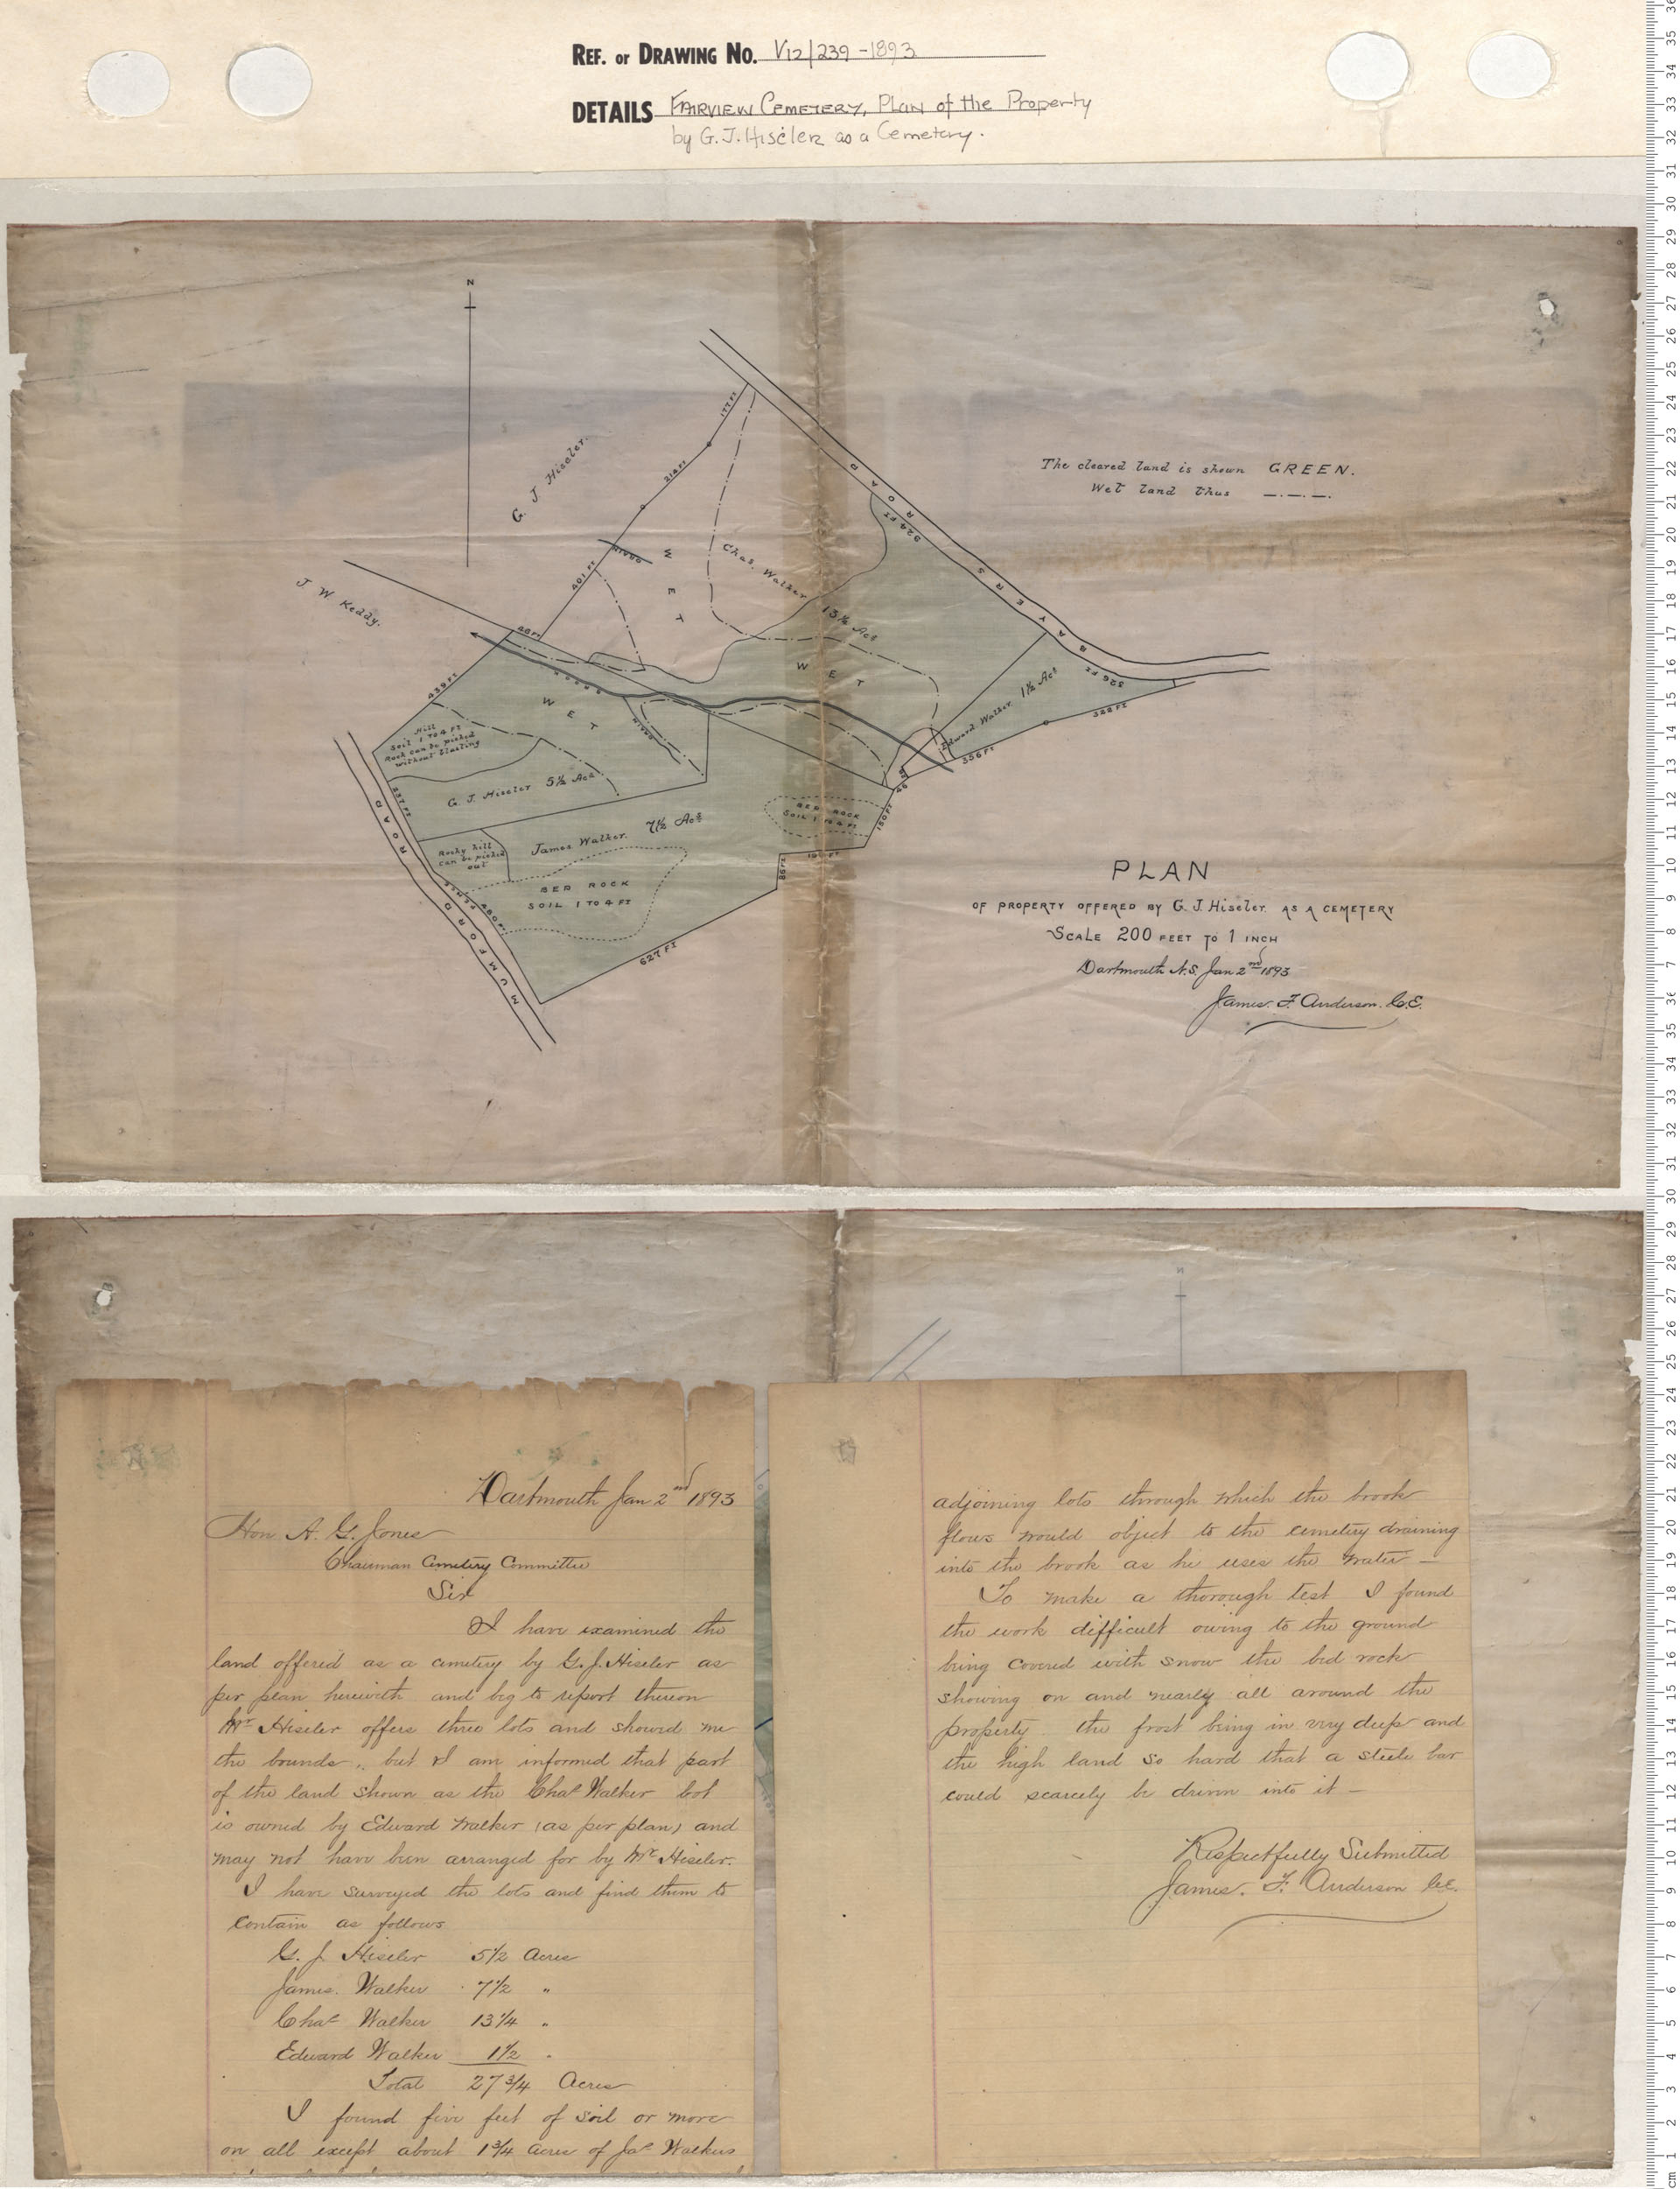 REF. OR DRAWING No. V12/239-1893
DETAILS FAIRVIEW CEMETERY, Plan of the Property
by G. J. HISELER as a Cemetery.
N
177 FT
G. J Hiseler.
214 FT
ROAD
The cleared land is shown GREEN.
Wet land thus —.—.—.
924 FT
401 FT
WET
Chas. Walker 13¼ Acs
BAYERS
J. W Keddy.
48 FT
WET
326 FT
Edward Walker 1½ Acs
344 FT
439 FT
WET
Hill
Soil 1 to 4 FT
Rock can be picked
without blasting
556 FT
G. J. Hiseler 5½ Acs
46
337 FT
BED ROCK
SOIL 1 to 4 FT
150 FT
James Walker. 7½ Acs
Rocky hill
can be picked
out
86 FT
BED ROCK
SOIL 1 TO 4 FT
627 FT
MUMFORD ROAD
PLAN
OF PROPERTY OFFERED BY G. J. Hiseler. AS A CEMETERY
SCALE 200 FEET TO 1 INCH
Dartmouth N.S. Jan 2nd 1893
James. F. Anderson. C.E.
N
Dartmouth Jan 2nd 1893
Hon A. G. Jones
Chairman Cemetery Committee
Sir
I have examined the
land offered as a cemetery by G. J. Hiseler as
per plan herewith and beg to report thereon
Mr Hiseler offers three lots and showed me
the bounds, but I am informed that part
of the land shown as the Chas Walker lot
is owned by Edward Walker (as per plan) and
may not have been arranged for by Mr Hiseler.
I have surveyed the lots and find them to
contain as follows
G. J Hiseler 5½ Acres
James. Walker 7½ "
Chas Walker 13¼ "
Edward Walker 1½ "
Total 27¾ Acres
I found five feet of soil or more
on all except about 1¾ acres of Jas Walkers
adjoining lots through which the brook
flows would object to the cemetery draining
into the brook as he uses the water —
To make a thorough test I found
the work difficult owing to the ground
being covered with snow the bed rock
showing on and nearly all around the
property. the frost being in very deep and
the high land so hard that a steele bar
could scarcely be driven into it —
Respectfully Submitted
James. F. Anderson C.E.